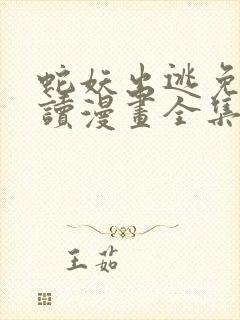 蛇妖出逃免
讀漫畫全集
王茹